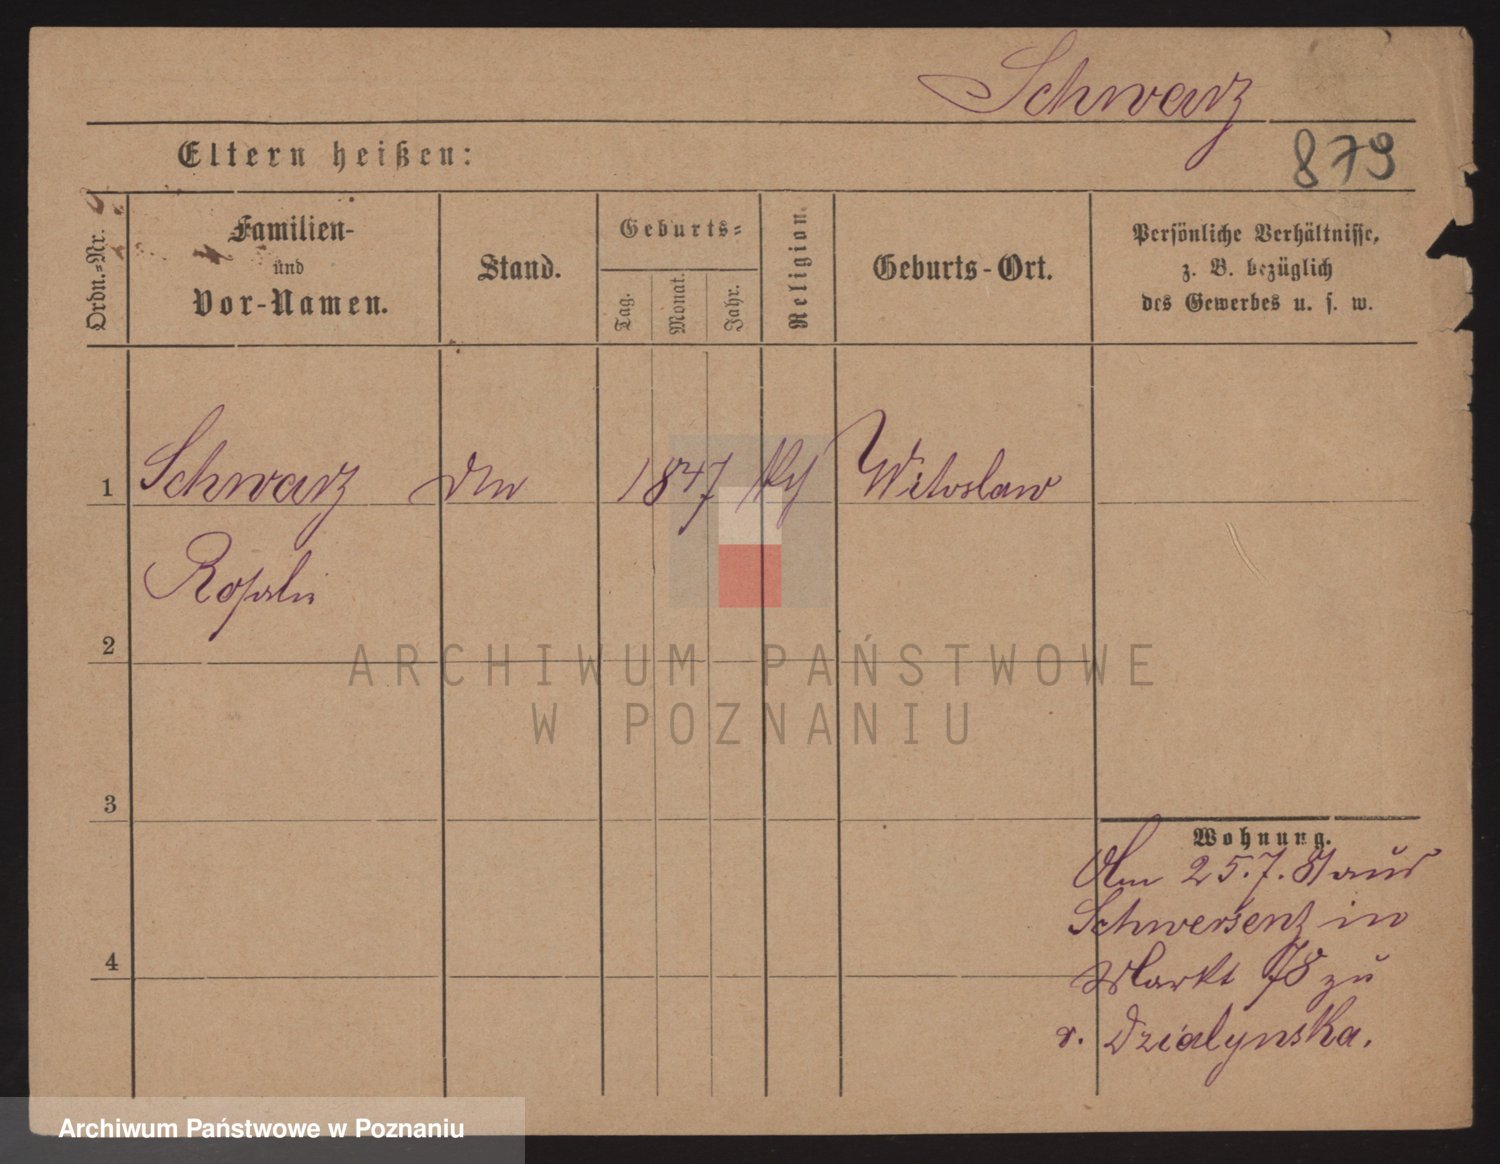 Schwarz
879
Eltern heißen:
Ordn.=Nr.
Familien-
und
Vor-Namen.
Stand.
Geburts=
Tag.
Monat.
Jahr.
Religion.
Geburts-Ort.
Persönliche Verhältnisse,
z. B. bezüglich
des Gewerbes u. s. w.
1 Schwarz 1847 Witoslaw
Rosalie
2
ARCHIWUM PAŃSTWOWE
W POZNANIU
3
Wohnung.
Am 25.7.81 aus
Schwersenz in
4
Markt 78 zu
v. Dzialynska.
Archiwum Państwowe w Poznaniu